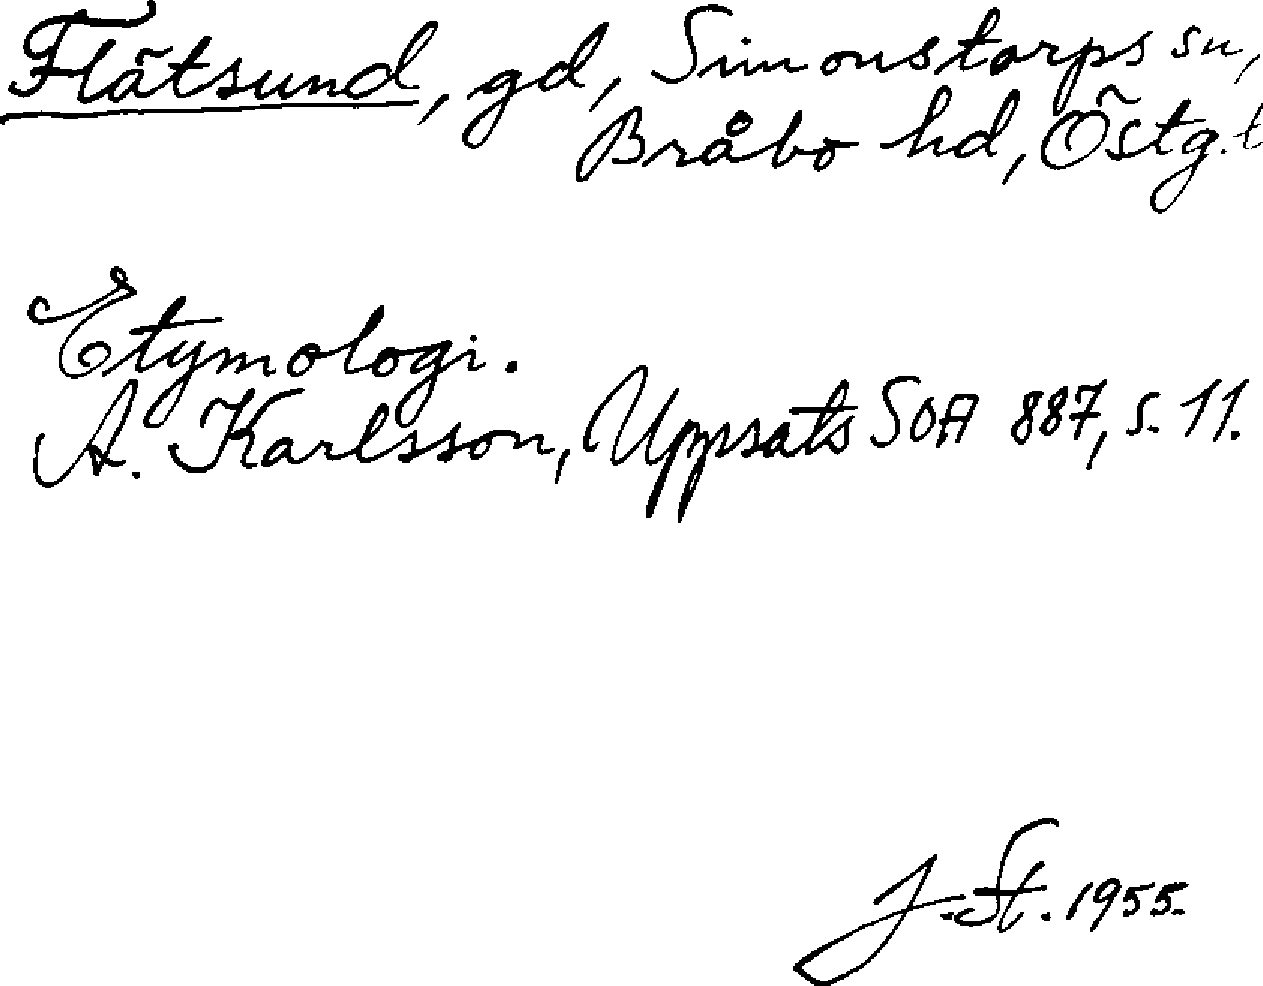 Flätsund, gd, Simonstorps sn,
Bråbo hd, Östg.l
Etymologi.
A. Karlsson, Uppsats SOA 887, s. 11.
J. St. 1955.